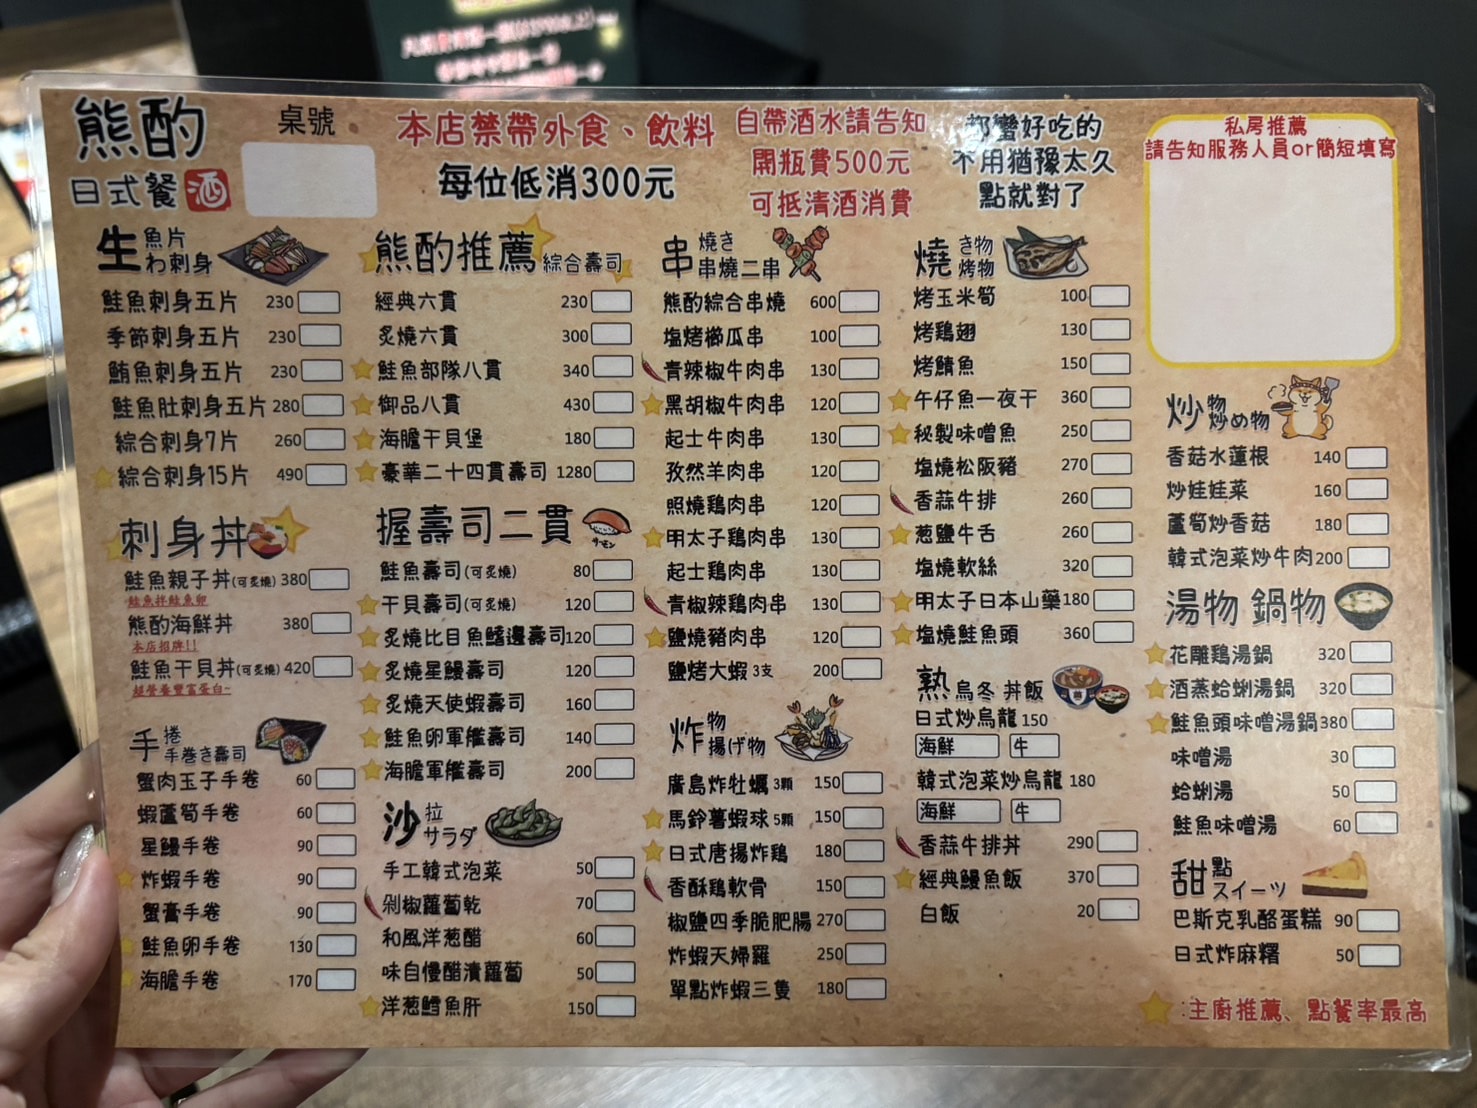 熊酌
日式餐酒
桌號
本店禁帶外食、飲料
每位低消300元
自帶酒水請告知
開瓶費500元
可抵清酒消費
都蠻好吃的
不用猶豫太久
點就對了
私房推薦
請告知服務人員or簡短填寫
生 魚片
わ刺身
鮭魚刺身五片 230
季節刺身五片 230
鮪魚刺身五片 230
鮭魚肚刺身五片 280
綜合刺身7片 260
綜合刺身15片 490
刺身丼
鮭魚親子丼(可炙燒) 380
鮭魚拌鮭魚卵
熊酌海鮮丼 380
本店招牌!!
鮭魚干貝丼(可炙燒) 420
超營養豐富蛋白~
手 捲
手巻き壽司
蟹肉玉子手卷 60
蝦蘆筍手卷 60
星鰻手卷 90
炸蝦手卷 90
蟹膏手卷 90
鮭魚卵手卷 130
海膽手卷 170
熊酌推薦 綜合壽司
經典六貫 230
炙燒六貫 300
鮭魚部隊八貫 340
御品八貫 430
海膽干貝堡 180
豪華二十四貫壽司 1280
握壽司二貫
サーモン
鮭魚壽司(可炙燒) 80
干貝壽司(可炙燒) 120
炙燒比目魚鰭邊壽司 120
炙燒星鰻壽司 120
炙燒天使蝦壽司 160
鮭魚卵軍艦壽司 140
海膽軍艦壽司 200
沙 拉
サラダ
手工韓式泡菜 50
剁椒蘿蔔乾 70
和風洋葱醋 60
味自慢醋漬蘿蔔 50
洋葱鱈魚肝 150
串 燒き
串燒二串
熊酌綜合串燒 600
塩烤櫛瓜串 100
青辣椒牛肉串 130
黑胡椒牛肉串 120
起士牛肉串 130
孜然羊肉串 120
照燒鶏肉串 120
明太子鶏肉串 130
起士鶏肉串 130
青椒辣鶏肉串 130
鹽燒豬肉串 120
鹽烤大蝦 3支 200
炸 物
揚げ物
廣島炸牡蠣 3顆 150
馬鈴薯蝦球 5顆 150
日式唐揚炸鶏 180
香酥鶏軟骨 150
椒鹽四季脆肥腸 270
炸蝦天婦羅 250
單點炸蝦三隻 180
燒 き物
烤物
烤玉米筍 100
烤鶏翅 130
烤鯖魚 150
午仔魚一夜干 360
秘製味噌魚 250
塩燒松阪豬 270
香蒜牛排 260
葱鹽牛舌 260
塩燒軟絲 320
明太子日本山藥 180
塩燒鮭魚頭 360
熱 烏冬 丼飯
日式炒烏龍 150
海鮮 牛
韓式泡菜炒烏龍 180
海鮮 牛
香蒜牛排丼 290
經典鰻魚飯 370
白飯 20
炒 物
炒め物
香菇水蓮根 140
炒娃娃菜 160
蘆筍炒香菇 180
韓式泡菜炒牛肉 200
湯物 鍋物
花雕鶏湯鍋 320
酒蒸蛤蜊湯鍋 320
鮭魚頭味噌湯鍋 380
味噌湯 30
蛤蜊湯 50
鮭魚味噌湯 60
甜 點
スイーツ
巴斯克乳酪蛋糕 90
日式炸麻糬 50
:主廚推薦、點餐率最高